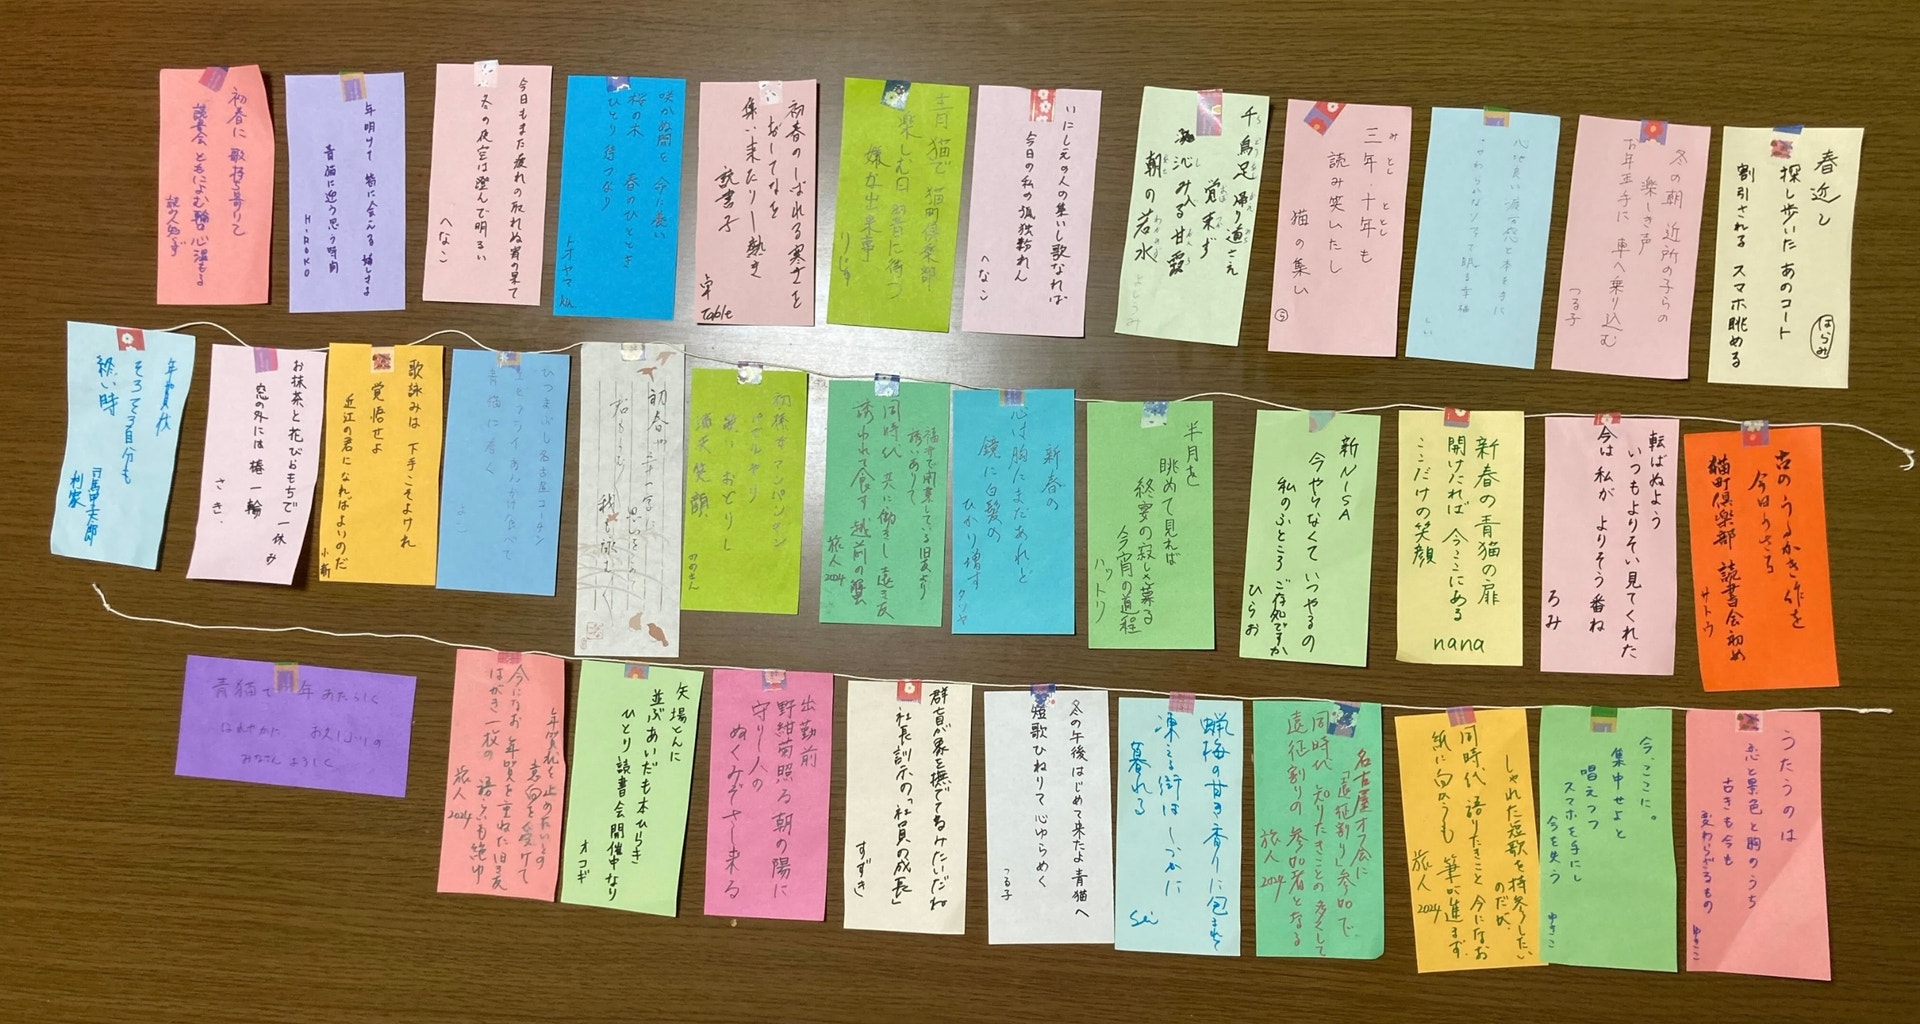 春近し
探し歩いた あのコート
割引される スマホ眺める
はらみ
冬の朝 近所の子らの
楽しき声
お年玉手に 車へ乗り込む
つる子
心地良い
しい
三年・十年も
みととし
読み笑いたし
猫の集い
千鳥足 帰り道さえ
覚束ず
朝の若水
よしうみ
いにしえの人の集いし歌なれば
今日の私の孤独紛れん
へなこ
青猫で 猫町倶楽部
楽しむ日
嫌な出来事
初春のしばれる寒さを
おしてなを
集い来たりし熱き
読書子
卓
table
咲かぬ間を
桜の木 春のひととき
ひとり 待つなり
トオヤマ
今日もまた疲れの取れぬ宵の果て
冬の夜空は澄んで明るい
へなこ
年明けて 皆に会える 嬉しさよ
青猫に迎う思う時間
HIROKO
初春に 歌持ち寄りて
読書会 ともによむ輪 心温もる
古のうるかき作を
今日ひさろ
猫町倶楽部 読書会初め
サトウ
転ばぬよう
いつもよりそい見てくれた
今は 私が よりそう番ね
ろみ
新春の青猫の扉
開けたれば 今ここにある
ここだけの笑顔
nana
新NISA
今やらなくて いつやるの
私のふところ ご存知ですか
ひらお
半月を
眺めて見れば
終宴の寂しさ募る
今宵の道程
ハットリ
新春の
心は胸にまだあれど
鏡に白髪の
ひかり増す
クソヤ
福井で開業している旧友より
誘いありて
同時代 共に働きし遠き友
誘われて食す 越前の蟹
旅人2024
アンパンマン
歌い おどりし
満天 笑顔
初春に
歌詠みは 下手こそよけれ
覚悟せよ
近江の君になればよいのだ
小新
お抹茶と花びらもちで一休み
窓の外には 椿一輪
さき.
年賀状
そろそろ自分も
終い時
司馬中太郎
利家
うたうのは
恋と景色と胸のうち
古きも今も
変わらざるもの
ゆきこ
今、ここに。
集中せよと
唱えつつ
スマホを手にし
今を失う
ゆきこ
しゃれた短歌を持参したい
のだが、
同時代 語りたきこと 今になお
紙に向かうも 筆が進まず
旅人2024
名古屋オフ会に
「遠征割り」参加で
同時代 知りたきことの多くして
遠征割りの 参加者となる
旅人2024
蝋梅の甘き香りに包まれて
凍える街は しづかに
暮れる
Sei
冬の午後はじめて来たよ青猫へ
短歌ひねりて心ゆらめく
つる子
群盲が象を撫でてるみたいだね
社長訓示の「社員の成長」
すずき
出勤前
野紺菊照る朝の陽に
守りし人の
ぬくみぞさし来る
矢場とんに
並ぶあいだも本ひらき
ひとり読書会開催中なり
オコギ
年賀状を止めたいとの
意向を受けて
今になお 年賀を重ねた旧き友
はがき一枚の 語らいも絶ゆ
旅人2024
青猫で 年あたらしく
はれやかに お久しぶりの
みなさん よろしく